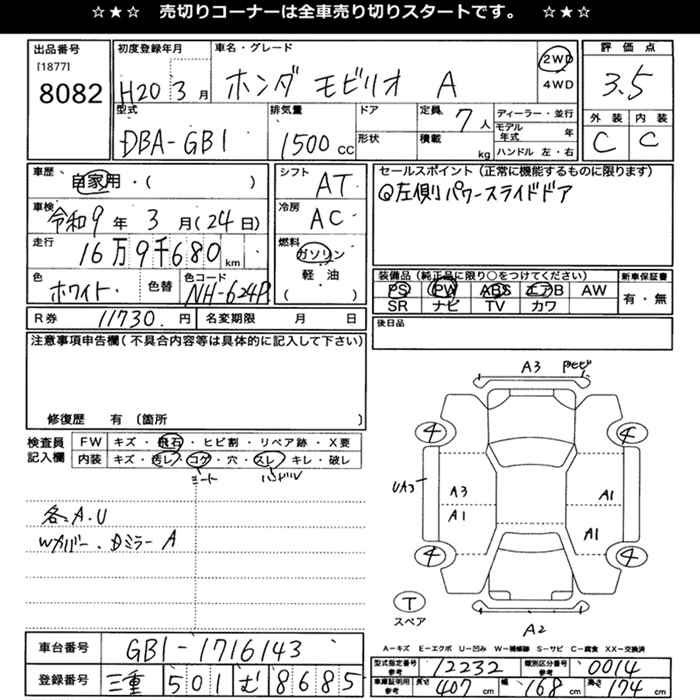 ☆★☆ 売切りコーナーは全車売り切りスタートです。 ☆★☆
出品番号
[1877]
8082
初度登録年月
H20年3月
車名・グレード
ホンダ モビリオ A
2WD
4WD
評価点
3.5
外装 内装
C C
型式
DBA-GB1
排気量
1500 CC
ドア
形状
定員 7人
積載 kg
ディーラー・並行
モデル年式 年
ハンドル 左・右
車歴
自家用・( )
車検
令和9年3月(24日)
走行
16万9千680 km
色
ホワイト
色替
色コード
NH-624P
シフト
AT
冷房
AC
燃料
ガソリン
軽油
( )
セールスポイント(正常に機能するものに限ります)
◎左側パワースライドドア
装備品(純正品に限り○をつけてください)
PS PW ABS エアB AW
SR ナビ TV カワ
新車保証書
有・無
R券 11730円
名変期限 月 日
後日品
注意事項申告欄(不具合内容等は具体的に記入して下さい)
修復歴 有 〔箇所 〕
検査員記入欄
FW キズ・飛石・ヒビ割・リペア跡・X要
内装 キズ・汚レ・コゲ・穴・スレ・キレ・破レ
シート ハンドル
各 A.U
Wカバー、Dミラー A
A3 Pセビ
4 4
UA3 A3 A1
A1 A1
4 4
T
スペア
A2
A−キズ E−エクボ U−凹み W−補修跡 S−サビ C−腐食 XX−交換済
車台番号 GB1-1716143
登録番号 三重 501 む 8685
型式指定番号 参考 12232
類別区分番号 参考 0014
車庫証明用 参考 長さ 407cm 幅 168cm 高さ 174cm